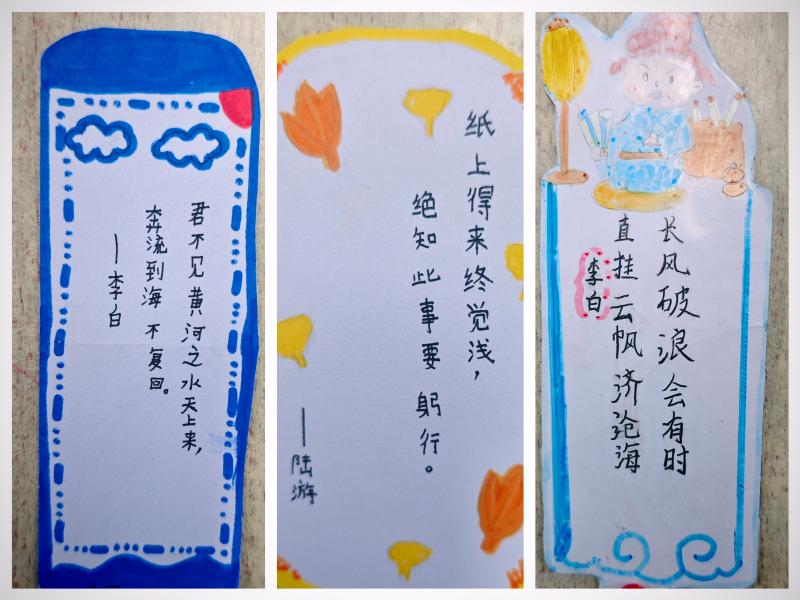 君不见黄河之水天上来，
奔流到海不复回。
——李白
纸上得来终觉浅，
绝知此事要躬行。
——陆游
长风破浪会有时
直挂云帆济沧海
李白